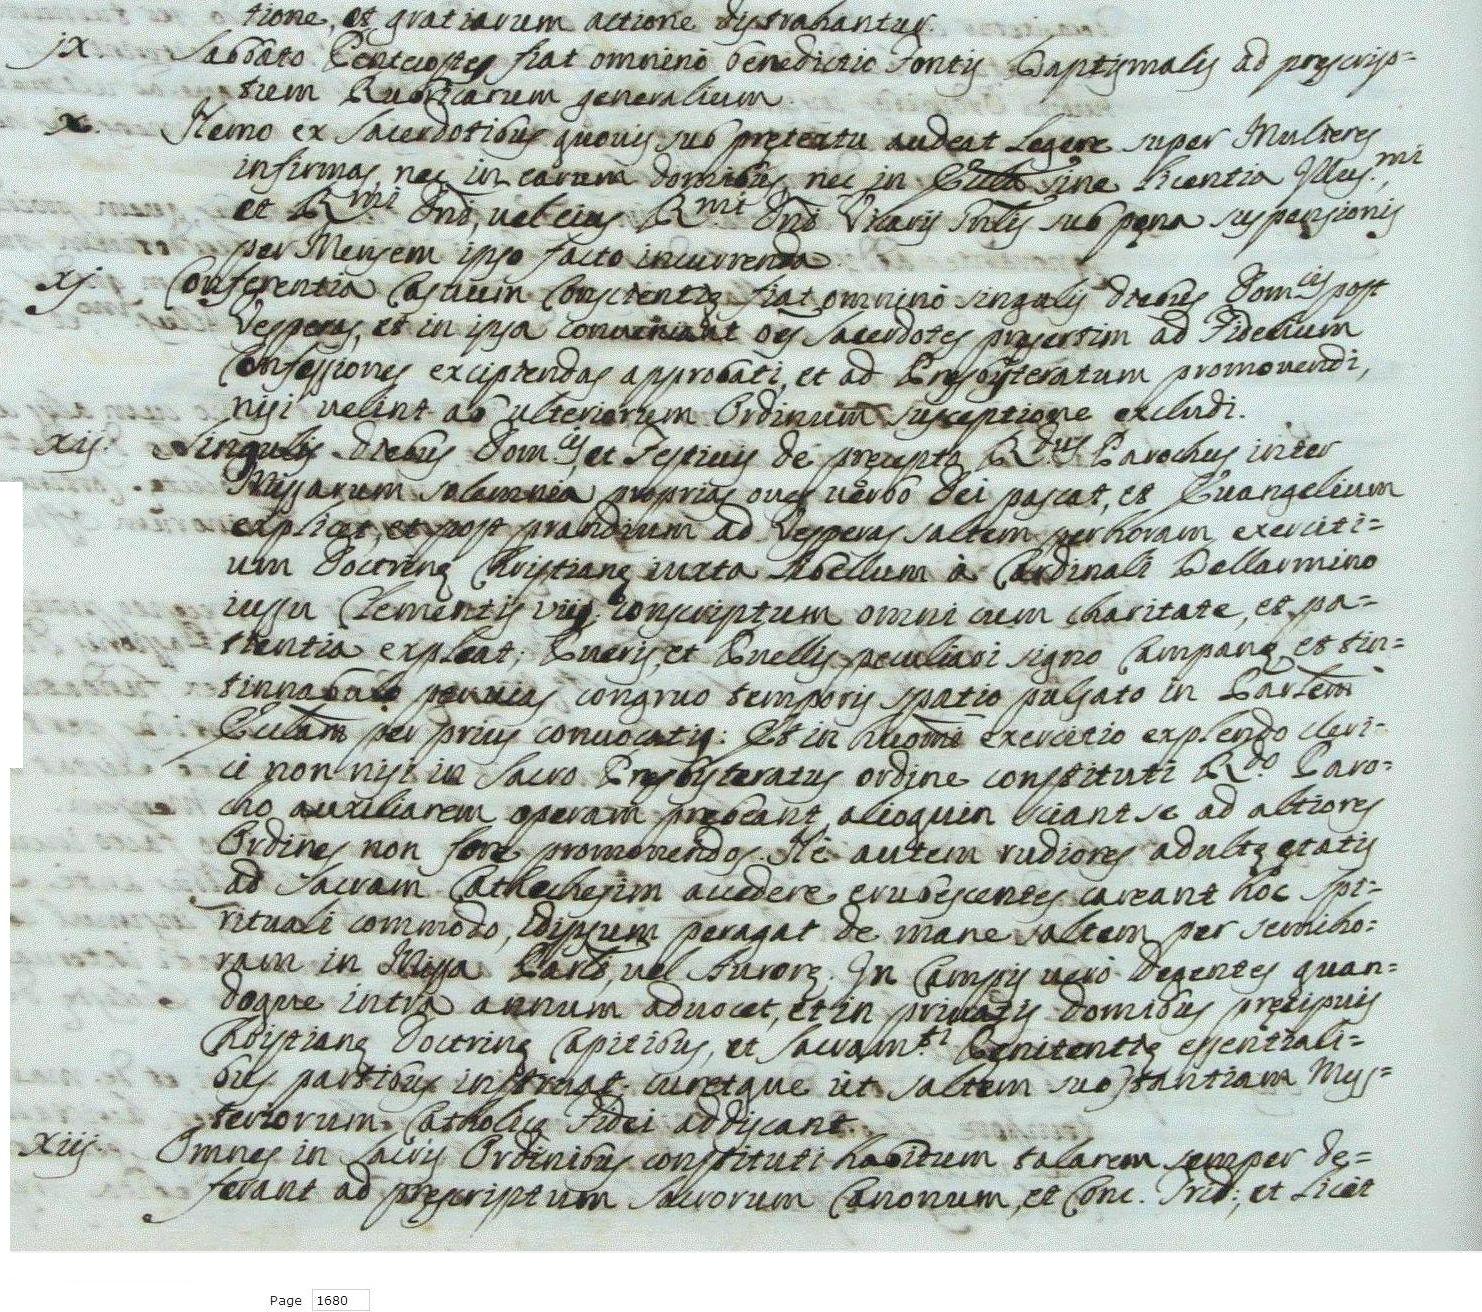 tione, et gratiarum actione distrahantur.
ix. Sabbato Pentecostes fiat omnino benedictio Fontis Baptismalis ad prescrip=
tum Rubricarum generalium
x. Nemo ex Sacerdotibus quovis sub pretextu audeat Legere super Mulieres
infirmas nec in earum domibus, nec in Ecclia sine licentia Illus.mi
et Rmi Dni, vel eius Rmi Dni Vicarij Gnlis sub pena suspensionis
per Mensem ipso facto incurrenda.
xj. Conferentia Casuum Conscientię fiat omnino singulis diebus Domcis post
Vesperas, et in ipsa conveniant oes Sacerdotes presertim ad Fidelium
Confessiones excipiendas approbati, et ad Presbyteratum promovendi,
nisi velint ab ulteriorum Ordinum susceptione excludi.
xij. Singulis diebus Domcis, et Festivis de precepto Rdus Parochus inter
Missarum solemnia proprias oves verbo Dei pascat, et Evangelium
explicet, et post prandium ad Vesperas saltem per horam exerciti=
um Doctrinę Christianę iuxta libellum à Cardinali Bellarmino
iussu Clementis viij conscriptum omni cum charitate, et pa=
tientia expleat; Pueris, et Puellis peculiari signo Campanę et tin=
tinnabulo per vicas congruo temporis spatio pulsato in Parlem
Ecclam per prius convocatis: Et in huiomi exercitio explendo cleri=
ci non nisi in Sacro Presbyteratus ordine constituti Rdo Paro=
cho auxiliarem operam prebeant, alioquin sciant se ad altiores
Ordines non fore promovendos. Ne autem rudiores adultę ętatis
ad Sacram Cathechesim accedere erubescentes careant hoc spi=
rituali commodo, idipsum peragat de mane saltem per semiho=
ram in Missa Parli, vel Aurorę. In Campis verò degentes quan=
doque intra annum advocet, et in privatis domibus pręcipuis
Christianę Doctrinę Capitibus, et Sacram.ti Penitentię essentiali=
bus partibus instruat curetque ut saltem substantiam Mys=
teriorum Catholicę Fidei addiscant.
xiij. Omnes in Sacris Ordinibus constituti habitum talarem semper de=
ferant ad prescriptum Sacrorum Canonum, et Conc. Trid; et licet
Page 1680